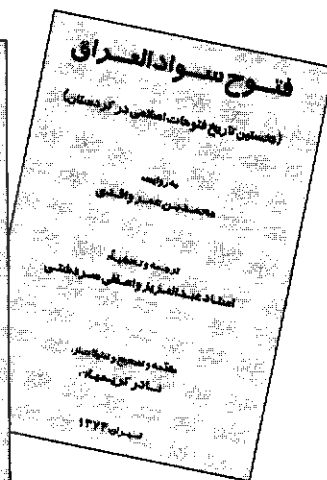 فتوح سواد العراق
(نخستین تاریخ فتوحات اسلامی در کردستان)
به روایت
محمدبن عمر واقدی
ترجمه و تحشیه
استاد عبدالعزیز واعظی سردشتی
مقدمه و تصحیح و تعلیقات
نادر کریمیان
تهران ۱۳۷۴